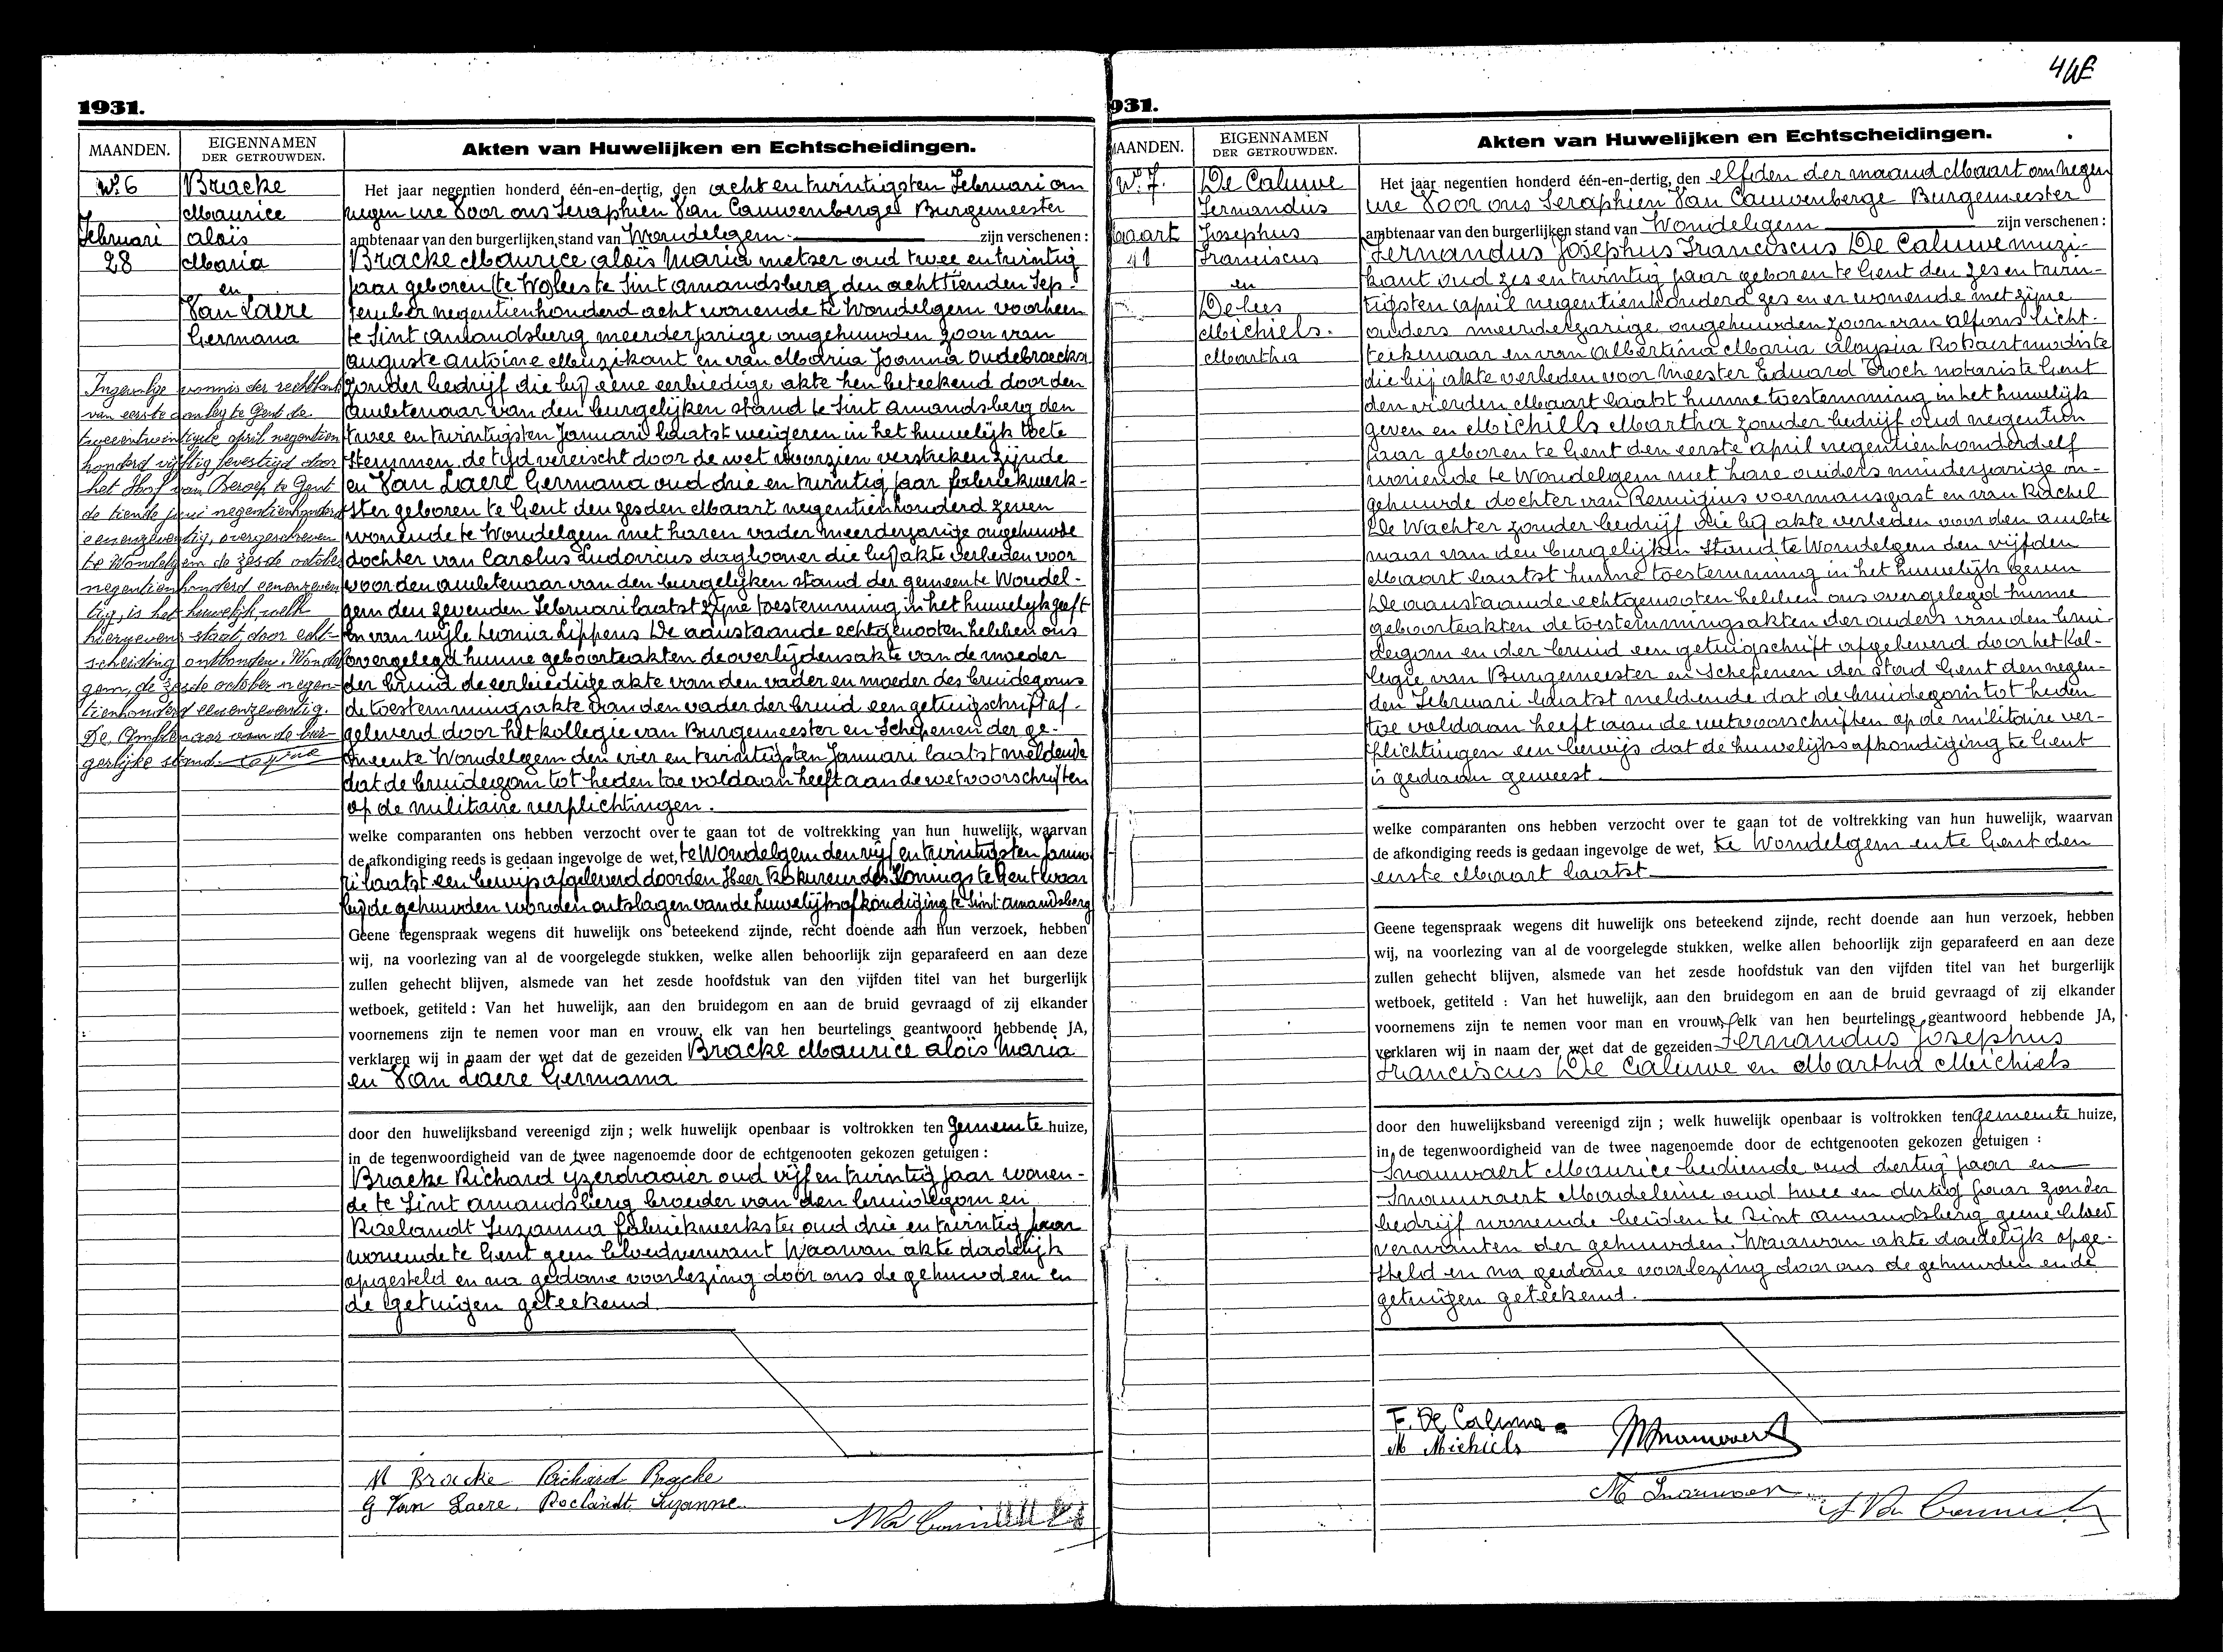 4
1931.
MAANDEN.
EIGENNAMEN
DER GETROUWDEN.
Akten van Huwelijken en Echtscheidingen.
N.º 6
Februari
28
Bracke
Maurice
Aloïs
Maria
en
Van Laere
Germana
Ingevolge vonnis der rechtbank
van eerste aanleg te Gent de
tweeentwintigste april negentien
honderd vijftig bevestigd door
het Hof van Beroep te Gent
de tiende juni negentienhonderd
eenenzeventig, overgeschreven
te Wondelgem de zesde october
negentienhonderd eenenzeven
tig, is het huwelijk, welk
hiernevens staat, door echt-
scheiding ontbonden. Wondel
gem, de zesde october negen-
tienhonderd eenenzeventig.
De Ambtenaar van de bur-
gerlijke stand.
Het jaar negentien honderd één-en-dertig, den acht en twintigsten Februari om
negen ure Voor ons Seraphien Van Cauwenberge Burgemeester
ambtenaar van den burgerlijken stand van Wondelgem zijn verschenen :
Bracke Maurice Aloïs Maria metser oud twee en twintig
jaar geboren te Sint Amandsberg den achttienden Sep-
tember negentienhonderd acht wonende te Wondelgem voorheen
te Sint Amandsberg meerderjarige ongehuwden zoon van
Auguste Antoine Muzikant en van Maria Joanna Oudebroeckx
zonder bedrijf die bij eene eerbiedige akte hen beteekend door den
ambtenaar van den burgelijken stand te Sint Amandsberg den
twee en twintigsten Januari laatst weigeren in het huwelijk toete
stemmen, de tijd vereischt door de wet voorzien verstreken zijnde
en Van Laere Germana oud drie en twintig jaar fabriekwerk-
ster geboren te Gent den zesden Maart negentienhonderd zeven
wonende te Wondelgem met haren vader meerderjarige ongehuwde
dochter van Carolus Ludovicus daglooner die bij akte verleden voor
voor den ambtenaar van den burgelijken stand der gemeente Wondel-
gem den zevenden Februari laatst zijne toestemming in het huwelijk geeft
en van wijle Leonia Lippens De aanstaande echtgenooten hebben ons
overgelegd hunne geboorteakten de overlijdensakte van de moeder
der bruid de eerbiedige akte van den vader en moeder des bruidegoms
de toestemmingsakte van den vader der bruid een getuigschrift af-
geleverd door het kollegie van Burgemeester en Schepenen der ge-
meente Wondelgem den vier en twintigsten Januari laatst meldende
dat de bruidegom tot heden toe voldaan heeft aan de wetvoorschriften
op de militaire verplichtingen.
welke comparanten ons hebben verzocht over te gaan tot de voltrekking van hun huwelijk, waarvan
de afkondiging reeds is gedaan ingevolge de wet, te Wondelgem den vijf en twintigsten Janua
ri laatst een bewijs afgeleverd door den Heer Prokureur des Konings te Gent waar
bij de gehuwden worden ontslagen van de huwelijksafkondiging te Sint-Amandsberg
Geene tegenspraak wegens dit huwelijk ons beteekend zijnde, recht doende aan hun verzoek, hebben
wij, na voorlezing van al de voorgelegde stukken, welke allen behoorlijk zijn geparafeerd en aan deze
zullen gehecht blijven, alsmede van het zesde hoofdstuk van den vijfden titel van het burgerlijk
wetboek, getiteld : Van het huwelijk, aan den bruidegom en aan de bruid gevraagd of zij elkander
voornemens zijn te nemen voor man en vrouw, elk van hen beurtelings geantwoord hebbende JA,
verklaren wij in naam der wet dat de gezeiden Bracke Maurice Aloïs Maria
en Van Laere Germana
door den huwelijksband vereenigd zijn ; welk huwelijk openbaar is voltrokken ten gemeente huize,
in de tegenwoordigheid van de twee nagenoemde door de echtgenooten gekozen getuigen :
Bracke Richard yzerdraaier oud vijf en twintig jaar wonen-
de te Sint Amandsberg broeder van den bruidegom en
Roelandt Suzanna fabriekwerkster oud drie en twintig jaar
wonende te Gent geen bloedverwant Waarvan akte dadelijk
opgesteld en na gedane voorlezing door ons de gehuwden en
de getuigen geteekend.
M Bracke Richard Bracke
G Van Laere. Roelandt Suzanne
931.
AANDEN.
EIGENNAMEN
DER GETROUWDEN.
Akten van Huwelijken en Echtscheidingen.
N.º 7.
Maart
11
De Caluwe
Fernandus
Josephus
Franciscus
en
Michiels.
Martha
Het jaar negentien honderd één-en-dertig, den elfden der maand Maart om negen
ure Voor ons Seraphien Van Cauwenberge Burgemeester
ambtenaar van den burgerlijken stand van Wondelgem zijn verschenen :
Fernandus Josephus Franciscus De Caluwe muzi-
kant oud zes en twintig jaar geboren te Gent den zes en twin-
tigsten april negentienhonderd en wonende met zijne
ouders meerderjarige ongehuwden zoon van Alfons licht-
teekenaar en van Albertina Maria Aloysia Robaert modiste
die bij akte verleden voor Meester Eduard notaris te Gent
den vierden Maart laatst hunne toestemming in het huwelijk
geven en Michiels Martha zonder bedrijf oud negentien
jaar geboren te Gent den eerste april negentienhonderd elf
wonende te Wondelgem met hare ouders minderjarige on-
gehuwde dochter van Remigius voermansgast en van Rachel
De Wachter zonder bedrijf die bij akte verleden voor den ambte
naar van den burgelijken stand te Wondelgem den vijfden
Maart laatst hunne toestemming in het huwelijk geven
De aanstaande echtgenooten hebben ons overgelegd hunne
geboorteakten de toestemmingsakten der ouders van den brui-
degom en der bruid een getuigschrift afgeleverd door het Kol-
legie van Burgemeester en Schepenen der stad Gent den negen-
den Februari laatst meldende dat de bruidegom tot heden
toe voldaan heeft aan de wetvoorschriften op de militaire ver-
plichtingen een bewijs dat de huwelijksafkondiging te Gent
is gedaan geweest.
welke comparanten ons hebben verzocht over te gaan tot de voltrekking van hun huwelijk, waarvan
de afkondiging reeds is gedaan ingevolge de wet, te Wondelgem en te Gent den
eerste Maart laatst
Geene tegenspraak wegens dit huwelijk ons beteekend zijnde, recht doende aan hun verzoek, hebben
wij, na voorlezing van al de voorgelegde stukken, welke allen behoorlijk zijn geparafeerd en aan deze
zullen gehecht blijven, alsmede van het zesde hoofdstuk van den vijfden titel van het burgerlijk
wetboek, getiteld : Van het huwelijk, aan den bruidegom en aan de bruid gevraagd of zij elkander
voornemens zijn te nemen voor man en vrouw, elk van hen beurtelings geantwoord hebbende JA,
verklaren wij in naam der wet dat de gezeiden Fernandus Josephus
Franciscus De Caluwe en Martha Michiels
door den huwelijksband vereenigd zijn ; welk huwelijk openbaar is voltrokken ten gemeente huize,
in de tegenwoordigheid van de twee nagenoemde door de echtgenooten gekozen getuigen :
Snauwaert Maurice bediende oud dertig jaar en
Snauwaert Madeleine oud twee en dertig jaar zonder
bedrijf wonende beiden te Sint Amandsberg geene bloed
verwanten der gehuwden. Waarvan akte dadelijk opge-
steld en na gedane voorlezing door ons de gehuwden en de
getuigen geteekend.
F. De Caluwe
M Michiels